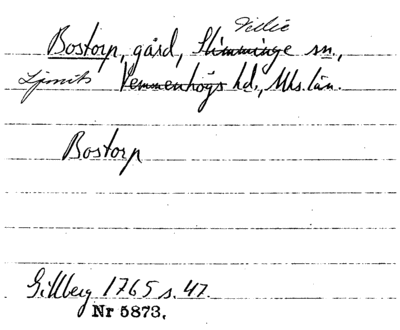 Villie
Bostorp, gård, Slimminge sn.,
Ljunits Vemmenhögs hd., Mhs. län.
Bostorp
Gillberg 1765 s. 47.
Nr 5873.